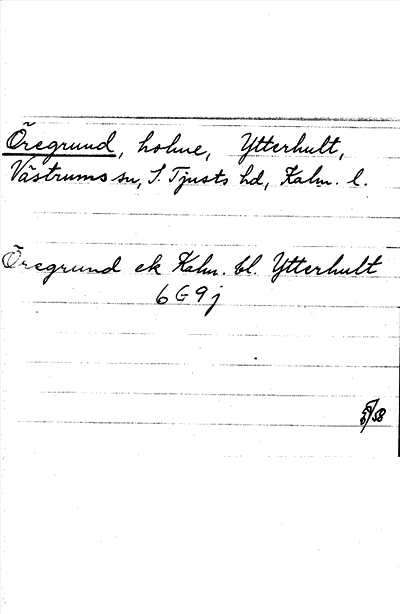 Öregrund, holme, Ytterhult,
Västrums sn, S. Tjusts hd, Kalm. l.
Öregrund ek Kalm. bl. Ytterhult
6G9j
/58